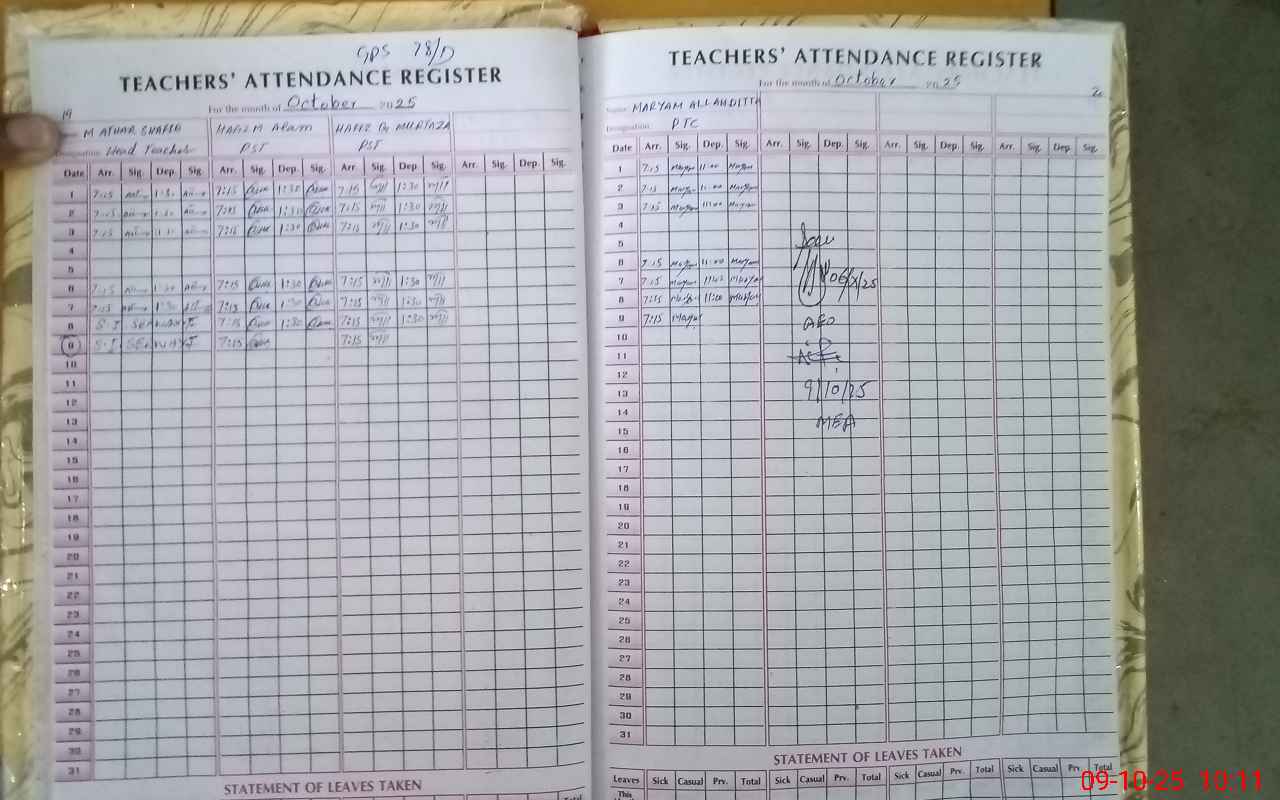 GPS 78/D
TEACHERS' ATTENDANCE REGISTER
For the month of October 2025
19
M ATHAR SHAFIQ
HAFIZ M Akram
HAFIZ G MURTAZA
Designation Head Teacher
PST
PST
Date Arr. Sig. Dep. Sig. Arr. Sig. Dep. Sig. Arr. Sig. Dep. Sig. Arr. Sig. Dep. Sig.
1 7:15 1:30 7:15 1:30 7:15 1:30
2 7:15 1:30 7:15 1:30 7:15 1:30
3 7:15 7:15 1:30 7:15 1:30
4
5
6 7:15 1:30 7:15 1:30 7:15 1:30
7 7:15 1:30 7:15 1:30 7:15 1:30
8 S.I. 7:15 1:30 7:15 1:30
9 S.I. 7:15 7:15
10
11
12
13
14
15
16
17
18
19
20
21
22
23
24
25
26
27
28
29
30
31
STATEMENT OF LEAVES TAKEN
Total
TEACHERS' ATTENDANCE REGISTER
For the month of October 2025
20
Name MARYAM ALLAHDITTA
Designation PTC
Date Arr. Sig. Dep. Sig. Arr. Sig. Dep. Sig. Arr. Sig. Dep. Sig. Arr. Sig. Dep. Sig.
1 7:15 Maryam 11:00 Maryam
2 7:15 Maryam 11:00 Maryam
3 7:15 Maryam 11:00 Maryam
4
5
6 7:15 Maryam 11:00 Maryam
7 7:15 Maryam Maryam
8 7:15 Maryam 11:00 Maryam
9 7:15 Maryam
06/X/25
AEO
10
11
12
13
9/10/25
14
15
MEA
16
17
18
19
20
21
22
23
24
25
26
27
28
29
30
31
STATEMENT OF LEAVES TAKEN
Leaves Sick Casual Prv. Total Sick Casual Prv. Total Sick Casual Prv. Total Sick Casual Prv. Total
This
09-10-25 10:11